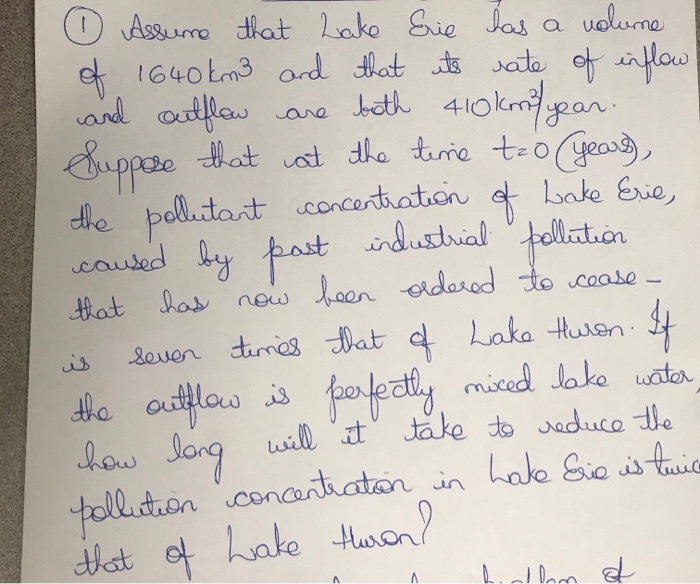 ① Assume that Lake Erie has a volume
of 1640 km³ and that its rate of inflow
and outflow are both 410 km³/year.
Suppose that at the time t=0 (years),
the pollutant concentration of Lake Erie,
caused by past industrial pollution
that has now been ordered to cease –
is seven times that of Lake Huron. If
the outflow is perfectly mixed lake water,
how long will it take to reduce the
pollution concentration in Lake Erie is twic
that of Lake Huron?
of